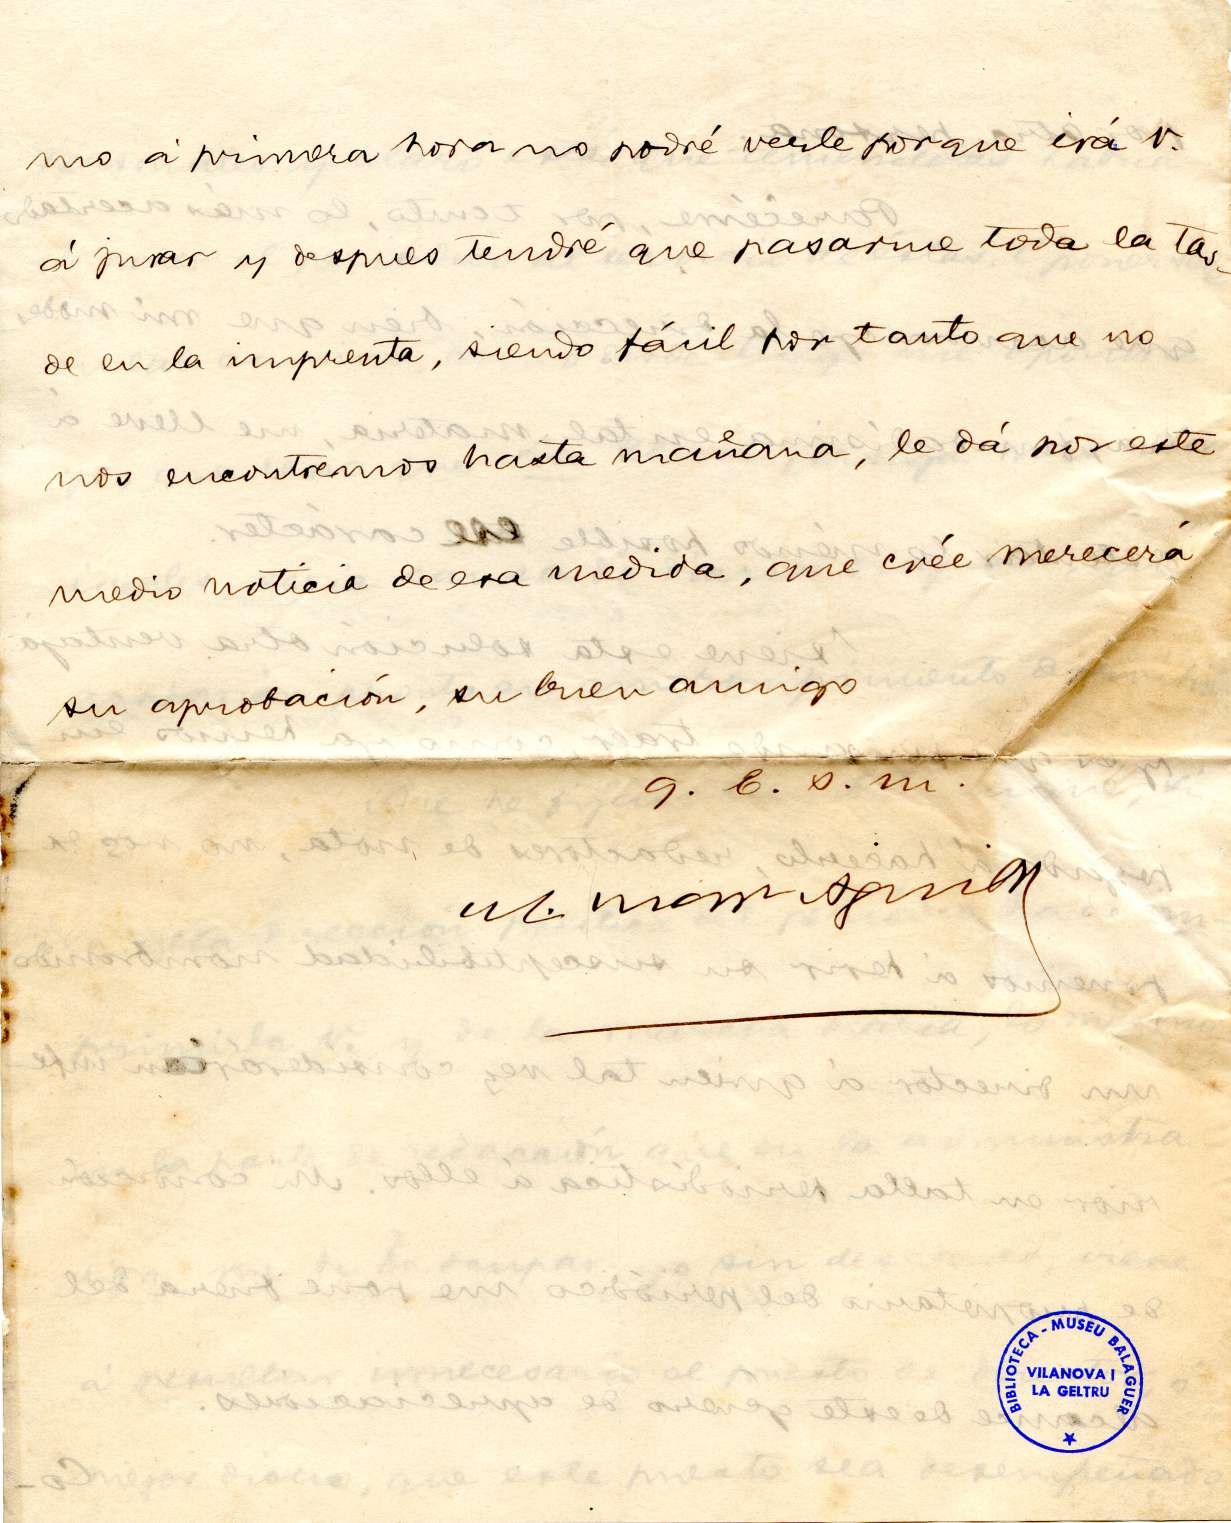 mo á primera hora no podré verle porque irá V.
á jurar y despues tendré que pasarme toda la tar-
de en la imprenta, siendo fácil por tanto que no
nos encontremos hasta mañana, le dá por este
medio noticia de esa medida, que crée merecerá
su aprobación, su buen amigo
q. b. s. m.
BIBLIOTECA - MUSEU BALAGUER
VILANOVA I
LA GELTRU